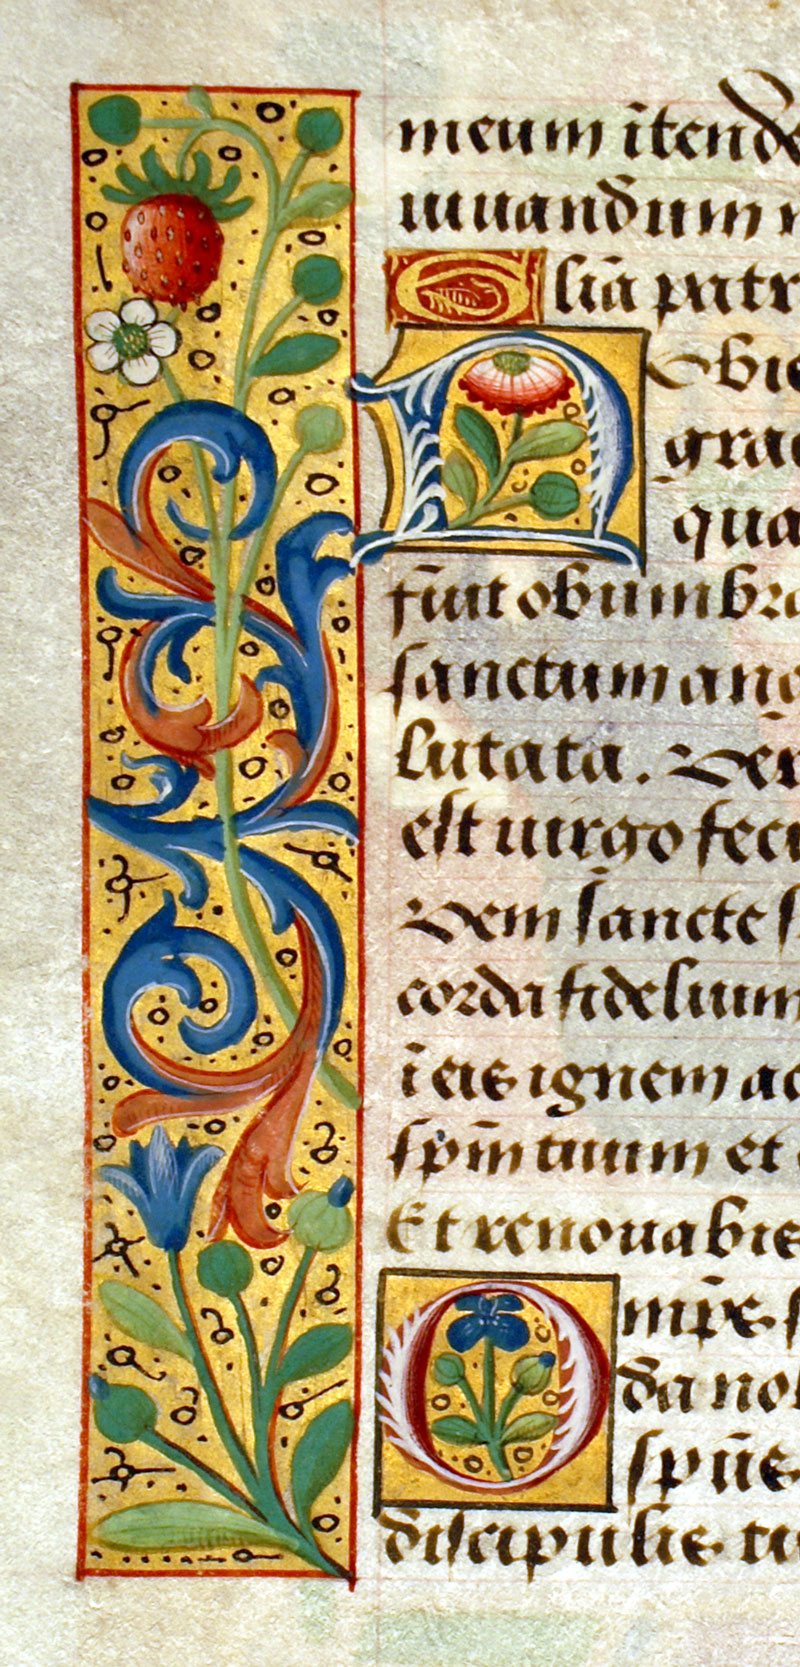 meum ītende
iuuandum m
Glīa patri
Nobis
grac
qua
fuit obumbra
sanctum ang
lutata. Ver
est uirgo fecu
dem sancte s
corda fidelium
ī eis ignem ac
spm̄ tuum et
Et renouabis
Omps s
da nob
spūs
discipulis tu